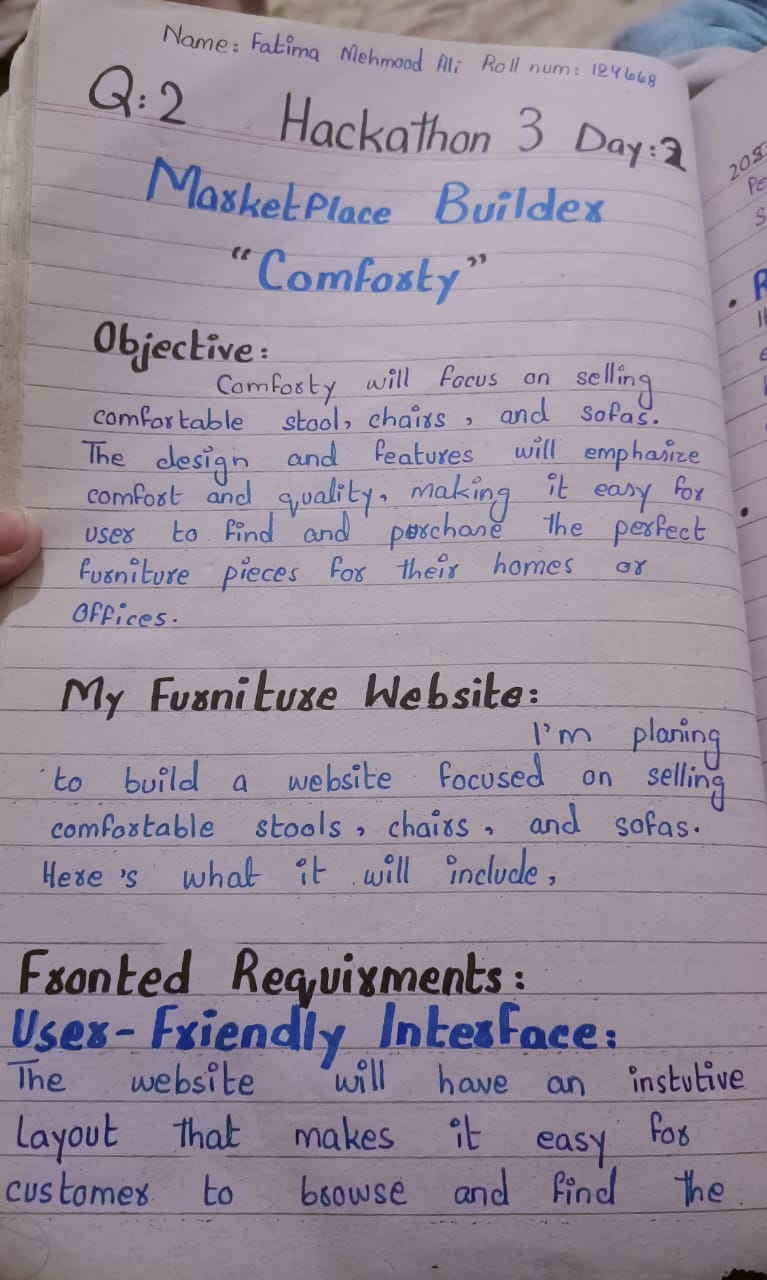 Name: Fatima Mehmood Ali Roll num: 124668
Q:2 Hackathon 3 Day:2
MarketPlace Builder
"Comforty"
Objective:
Comforty will focus on selling
comfortable stool, chairs, and sofas.
The design and features will emphasize
comfort and quality, making it easy for
user to find and purchase the perfect
furniture pieces for their homes or
offices.
My Furniture Website:
I'm planing
to build a website focused on selling
comfortable stools, chairs, and sofas.
Here's what it will include,
Fronted Requirments:
User-Friendly Interface:
The website will have an instutive
Layout that makes it easy for
customer to browse and find the